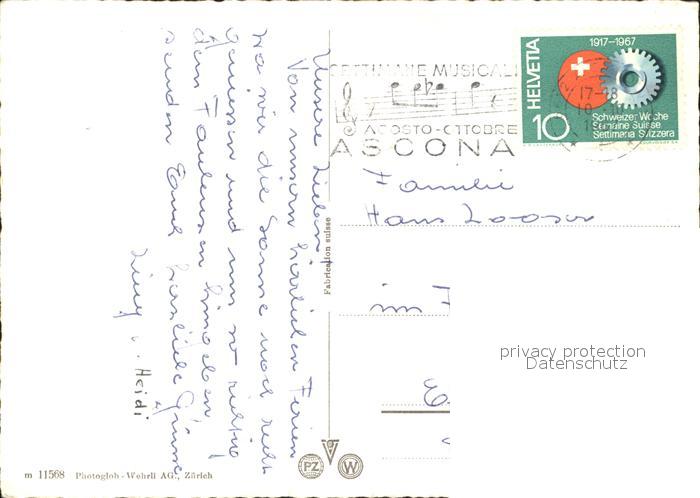 Unsere Lieben!
Von unsern herrlichen Ferien
wo wir die Sonne noch recht
geniessen und uns so richtig
dem Faulenzen hingeben,
senden Euch herzliche Grüsse
u. Heidi
SETTIMANE MUSICALI
AGOSTO-OTTOBRE
ASCONA
HELVETIA
1917-1967
10
Schweizer Woche
Semaine Suisse
Settimana Svizzera
17-18
Familie
Hans Looser
Fabrication suisse
privacy protection
Datenschutz
m 11568 Photoglob-Wehrli AG., Zürich
PZ W